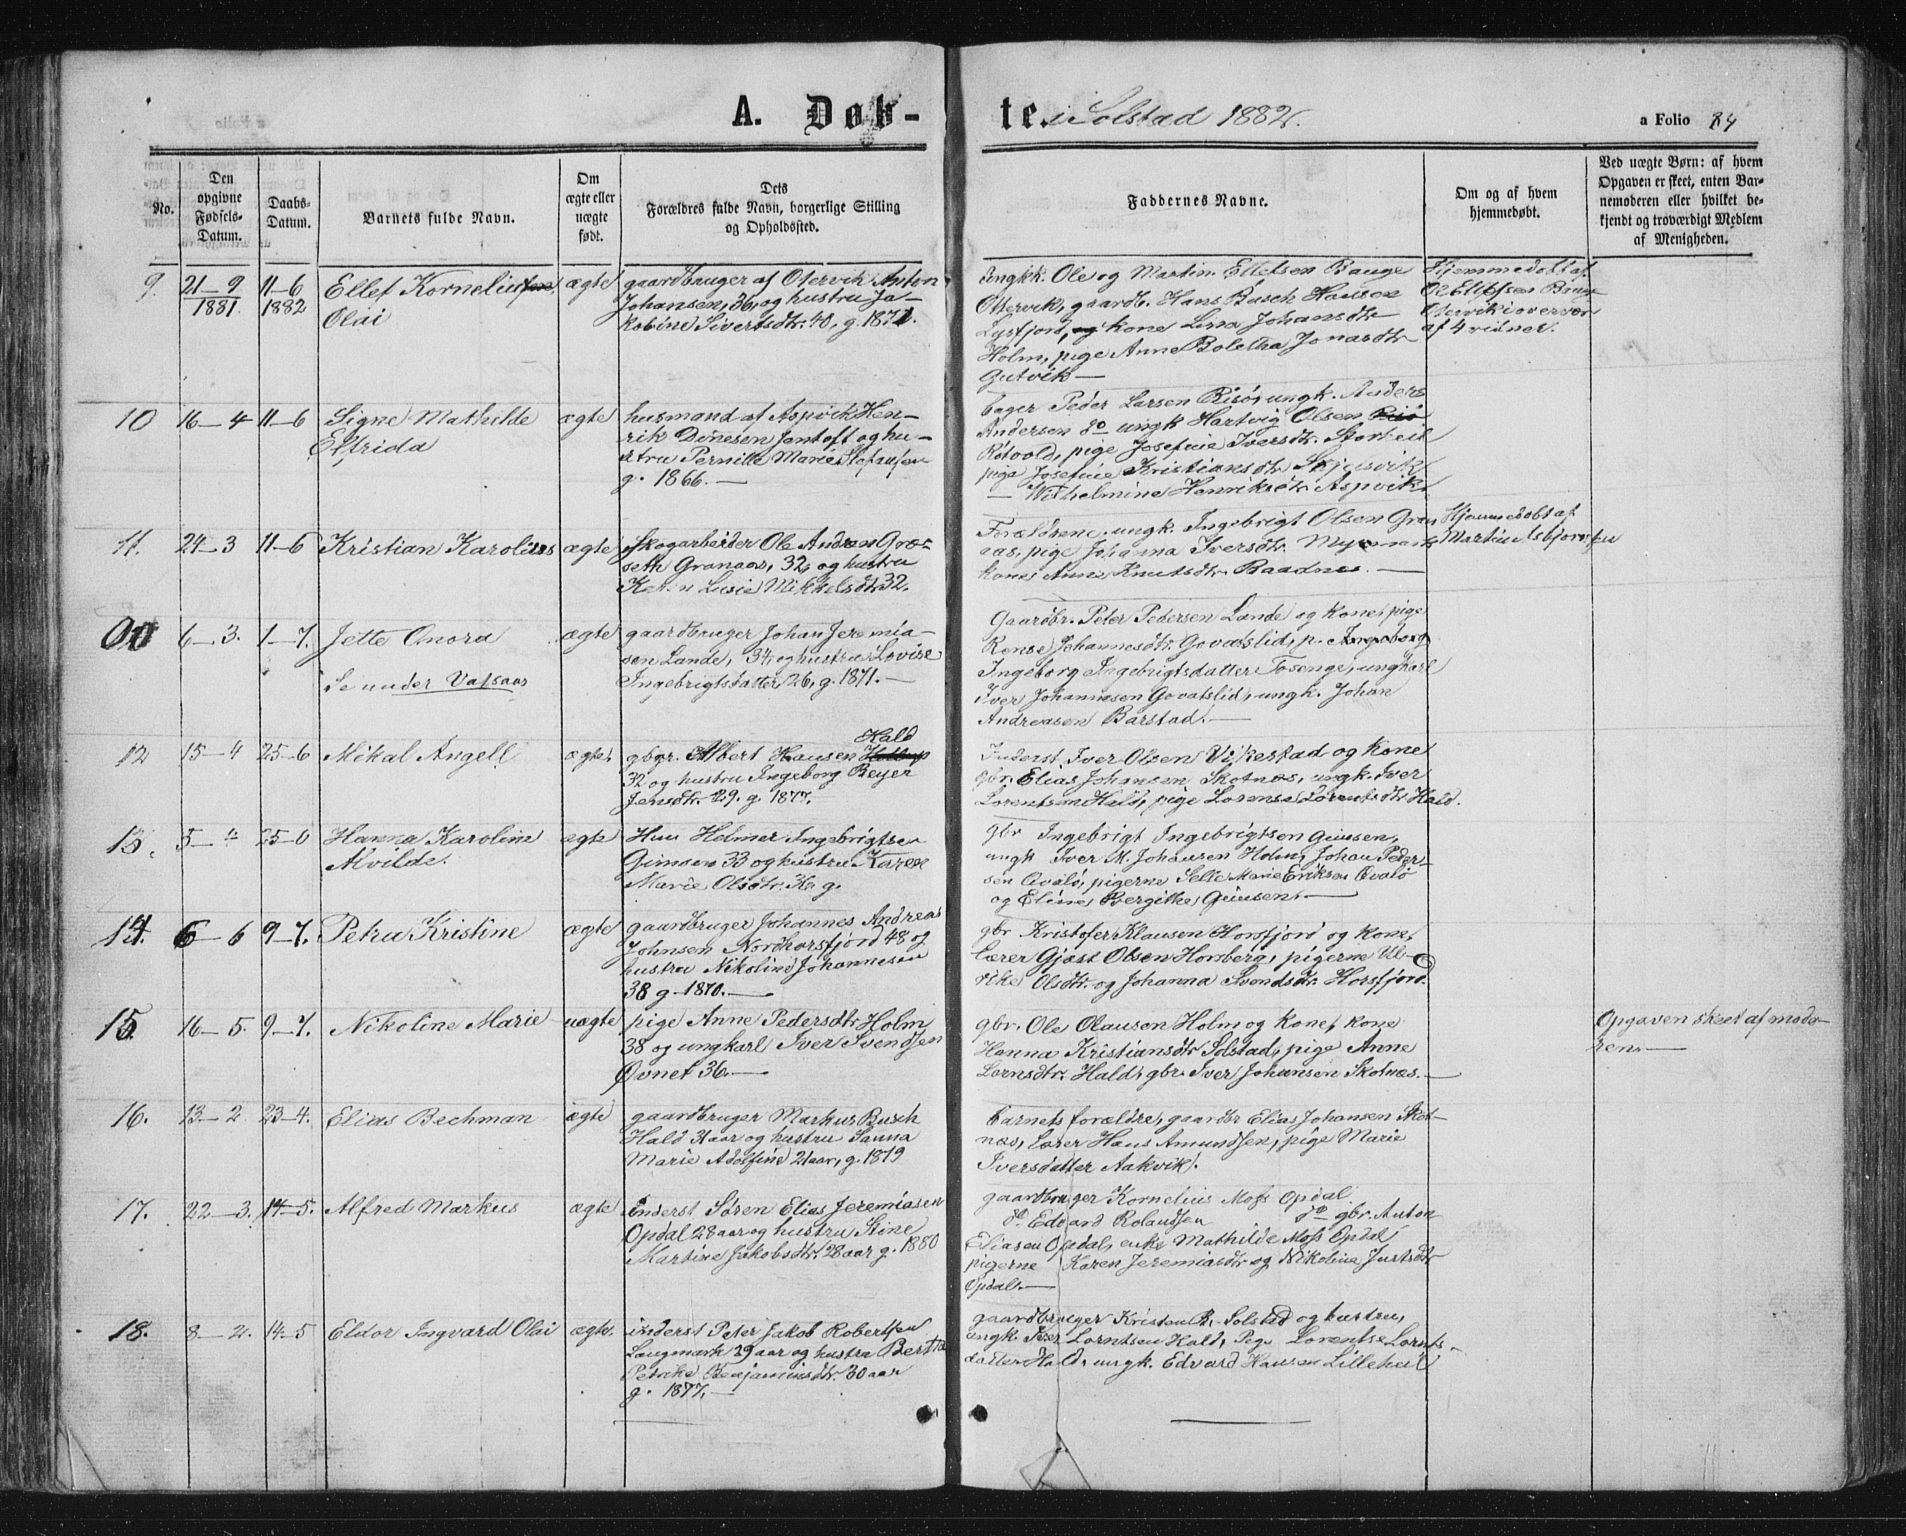 A. Døb-
te. i Solstad 1882.
a Folio 84
No.
Den
opgivne
Fødsels-
Datum.
Daabs-
Datum.
Barnets fulde Navn.
Om
ægte eller
uægte
født.
Dets
Forældres fulde Navn, borgerlige Stilling
og Opholdssted.
Faddernes Navne.
Om og af hvem
hjemmedøbt.
Ved uægte Børn: af hvem
Opgaven er skeet, enten Bar-
nemoderen eller hvilket be-
kjendt og troværdigt Medlem
af Menigheden.
9. 21–9 11–6 Ellef Kornelius ægte gaardbruger af Otervik Anton
1881. 1882 Olai Johansen, 36, og hustru Ja-
kobine Sivertsdtr. 40, g. 1871.
ungkk. Ole og Martin Ellefsen Bauge
Otervik, gaardb. Hans Busch Hansen
Lysfjord, og kone Lina Johansdtr
Holm, pige Anne Boletha Jonasdtr
Gutvik—
Hjemmedøbt af
Ol. Ellefsen Bauge
Otervik i overvær
af 4 vidner.
10 16–4 11–6 Signe Mathilde ægte husmand af Aspvik Hen-
Elfrida rik Dønesen Jantoft og hu-
stru Pernille Marie Stefansen
g. 1866.—
Peder Larsen Risø, ungk. Anders
Andersen do ungk Hartvig Olsen
pige Josefine Iversdtr.
pige Josefine Kristiansdtr.
— Wilhelmine Henriksdtr. Aspvik.
11. 24–3 11–6 Kristian Karolius ægte Skogarbeider Ole Andrean Græs-
seth Granaas, 32, og hustru
Lusie Mikkelsdtr 32.
Forældrene, ungk. Ingebrigt Olsen Gran-
aas, pige Johanna Iversdtr.
kone Anne Knutsdtr. Baadnes.—
Hjemmedøbt af
Martin Asbjørnsen
00 6–3. 1–7. Jette Onora ægte gaardbruger Johan Jeremia-
sen Lande, 34 og hustru Lovise
Se under Vassaas Ingebrigtsdatter, 26, g. 1871.—
Gaardbr. Peter Pedersen Lande og kone, pige
Johannesdtr. Govatslid, p. Ingeborg
Ingeborg Ingebrigtsdatter Tosenge, ungkarl
Iver Johannesen Govatslid, ungk. Johan
Andreasen Barstad.—
12 15–4 25–6 Mikal Angell ægte. gbgr. Albert Hansen Hald
32 og hustru Ingeborg Beyer
Jensdtr. 29. g. 1877.
Inderst Iver Olsen Vikestad og Kone
gbr. Elias Johansen Skotnæs, ungk. Iver
Lorentsen Hald, pige Lorense Lorentsdtr Hald.
13. 5–4 25–6 Hanna Karoline ægte Hun Helmer Ingebrigtsen
Alvilde. Gimsen 33 og hustru Karen
Marie Olsdtr.
gbr Ingebrigt Ingebrigtsen Gimsen,
ungk Iver M. Johansen Holm, Johan Peder-
sen Qvalø, pigerne Selle Marie Eriksen Qvalø
og Eline Bergitke Gimsen.—
14. 6–6 9–7. Petra Kristine ægte gaardbruger Johannes Andreas
Johnsen Nordhorsfjord 48 og
hustru Nikoline Johannesen
38 g. 1870.—
gbr Kristofer Klausen Horsfjord og kone,
Lærer Gjøst Olsen Hornberg, pigerne Ul-
rike Olsdtr. og Johanna Svendsdtr. Horsfjord.
15. 16–5. 9–7. Nikoline Marie uægte pige Anne Pedersdtr Holm
38 og ungkarl Iver Svendsen
Øvnet 36.—
gbr. Ole Olausen Holm og Kone, kone
Hanna Kristiansdtr Solstad, pige Anne
Lornsdtr. Hald, gbr. Iver Johansen Skotnæs.—
Opgaven skeet af mode-
ren.—
16. 13–2 23–4. Elias Bechman ægte gaardbruger Markus Busch
Hald 31 aar og hustru Sanna
Marie Adolfine 21 aar, g. 1879
barnets forældre, gaardbr Elias Johansen Skot-
næs, Lærer Hans Amundsen, pige Marie
Iversdatter Aakvik.
17. 22–3. 14–5. Alfred Markus ægte inderst Søren Elias Jeremiasen
Opdal 28 aar og hustru Stine
Martine Jakobsdtr. 28 aar g. 1880
gaardbruger Kornelius Moss Opdal
do Edvard Rolandsen do gbr. Anton
Eliasen Opdal, enke Mathilde Moss Opdal
pigerne Karen Jeremiasdtr og Nikolina Justsdtr
Opdal.—
18. 8–2. 14–5 Eldor Ingvard Olai ægte. inderst Peter Jakob Robertsen
Langmark 29 aar og hustru Bertha
Petrike Benjaminsdtr. 30 aar
g. 1877.—
gaardbruger Kristen B. Solstad og hustru,
ungk Iver Lorntsen Hald, Pige Lorentse Lornts-
datter Hald, ungk. Edvard Hansen Lilleheil